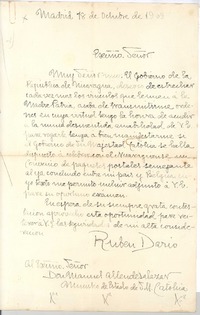 Madrid 18 de Octubre de 1908
Excmo. Señor
Muy Señor mío: El Gobierno de la
República de Nicaragua, deseoso de estrechar
cada vez mas los vínculos que le unen a la
Madre Patria, acaba de transmitirme, órde-
nes en cuya virtud tengo la honra de acudir
a la nunca desmentida amabilidad de V.E.
para que tenga a bien manifestarme si
el Gobierno de Su Majestad Católica se halla
dispuesto a celebrar con el Nicaragüense, un
convenio de paquetes postales semejante
al ya concluido entre mi país y Bélgica cu-
yo texto me permito incluir adjunto a V.E.
para su oportuno examen.
En espera de su siempre grata contes-
tación aprovecho esta oportunidad para rei-
terar a V.E. las seguridades de mi alta conside-
ración.
Rubén Darío
Al Excmo. Señor
Don Manuel Allendesalazar
Ministro de Estado de S.M. Católica